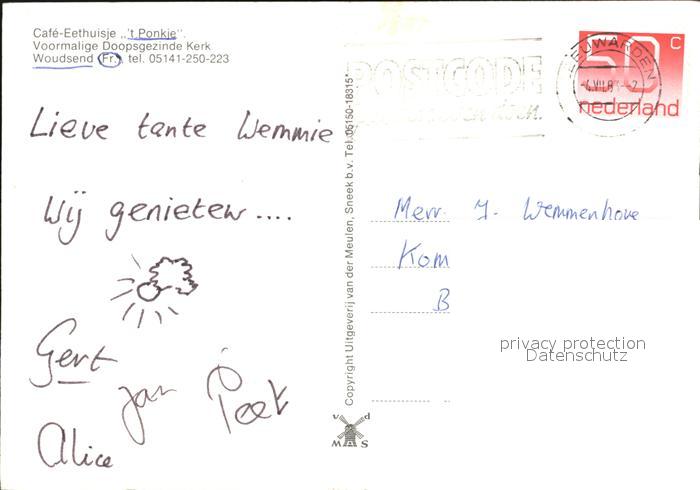 Café-Eethuisje „'t Ponkje".
Voormalige Doopsgezinde Kerk
Woudsend (Fr.), tel. 05141-250-223
Lieve tante Wemmie
Wij genieten....
Gert
Jan Poek
Alice
Copyright Uitgeverij van der Meulen, Sneek b.v. Tel. 05150-18315*
v d
M S
POSTCODE
doen.
LEEUWARDEN
50 c
nederland
Mevr. J. Wemmenhove
Kom
B
privacy protection
Datenschutz